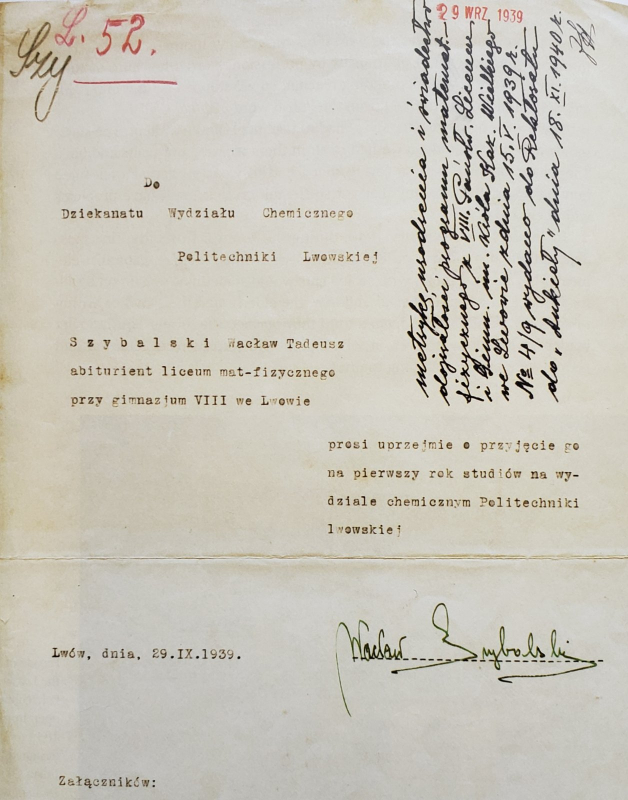 L. 52.
Szy
29 WRZ. 1939
metrykę urodzenia i świadectwo
dojrzałości programu matemat.
fizycznego z VIII. Państw. Liceum
i Gimn. im. Króla Kaz. Wielkiego
we Lwowie z dnia 15.V.1939 r.
№ 4/9 wydano do Rektoratu
do „Ankiety" dnia 18.XI.1940 r.
Do
Dziekanatu Wydziału Chemicznego
Politechniki Lwowskiej
Szybalski Wacław Tadeusz
abiturient liceum mat-fizycznego
przy gimnazjum VIII we Lwowie
prosi uprzejmie o przyjęcie go
na pierwszy rok studiów na wy-
dziale chemicznym Politechniki
lwowskiej
Lwów, dnia, 29.IX.1939.
Wacław Szybalski
Załączników: